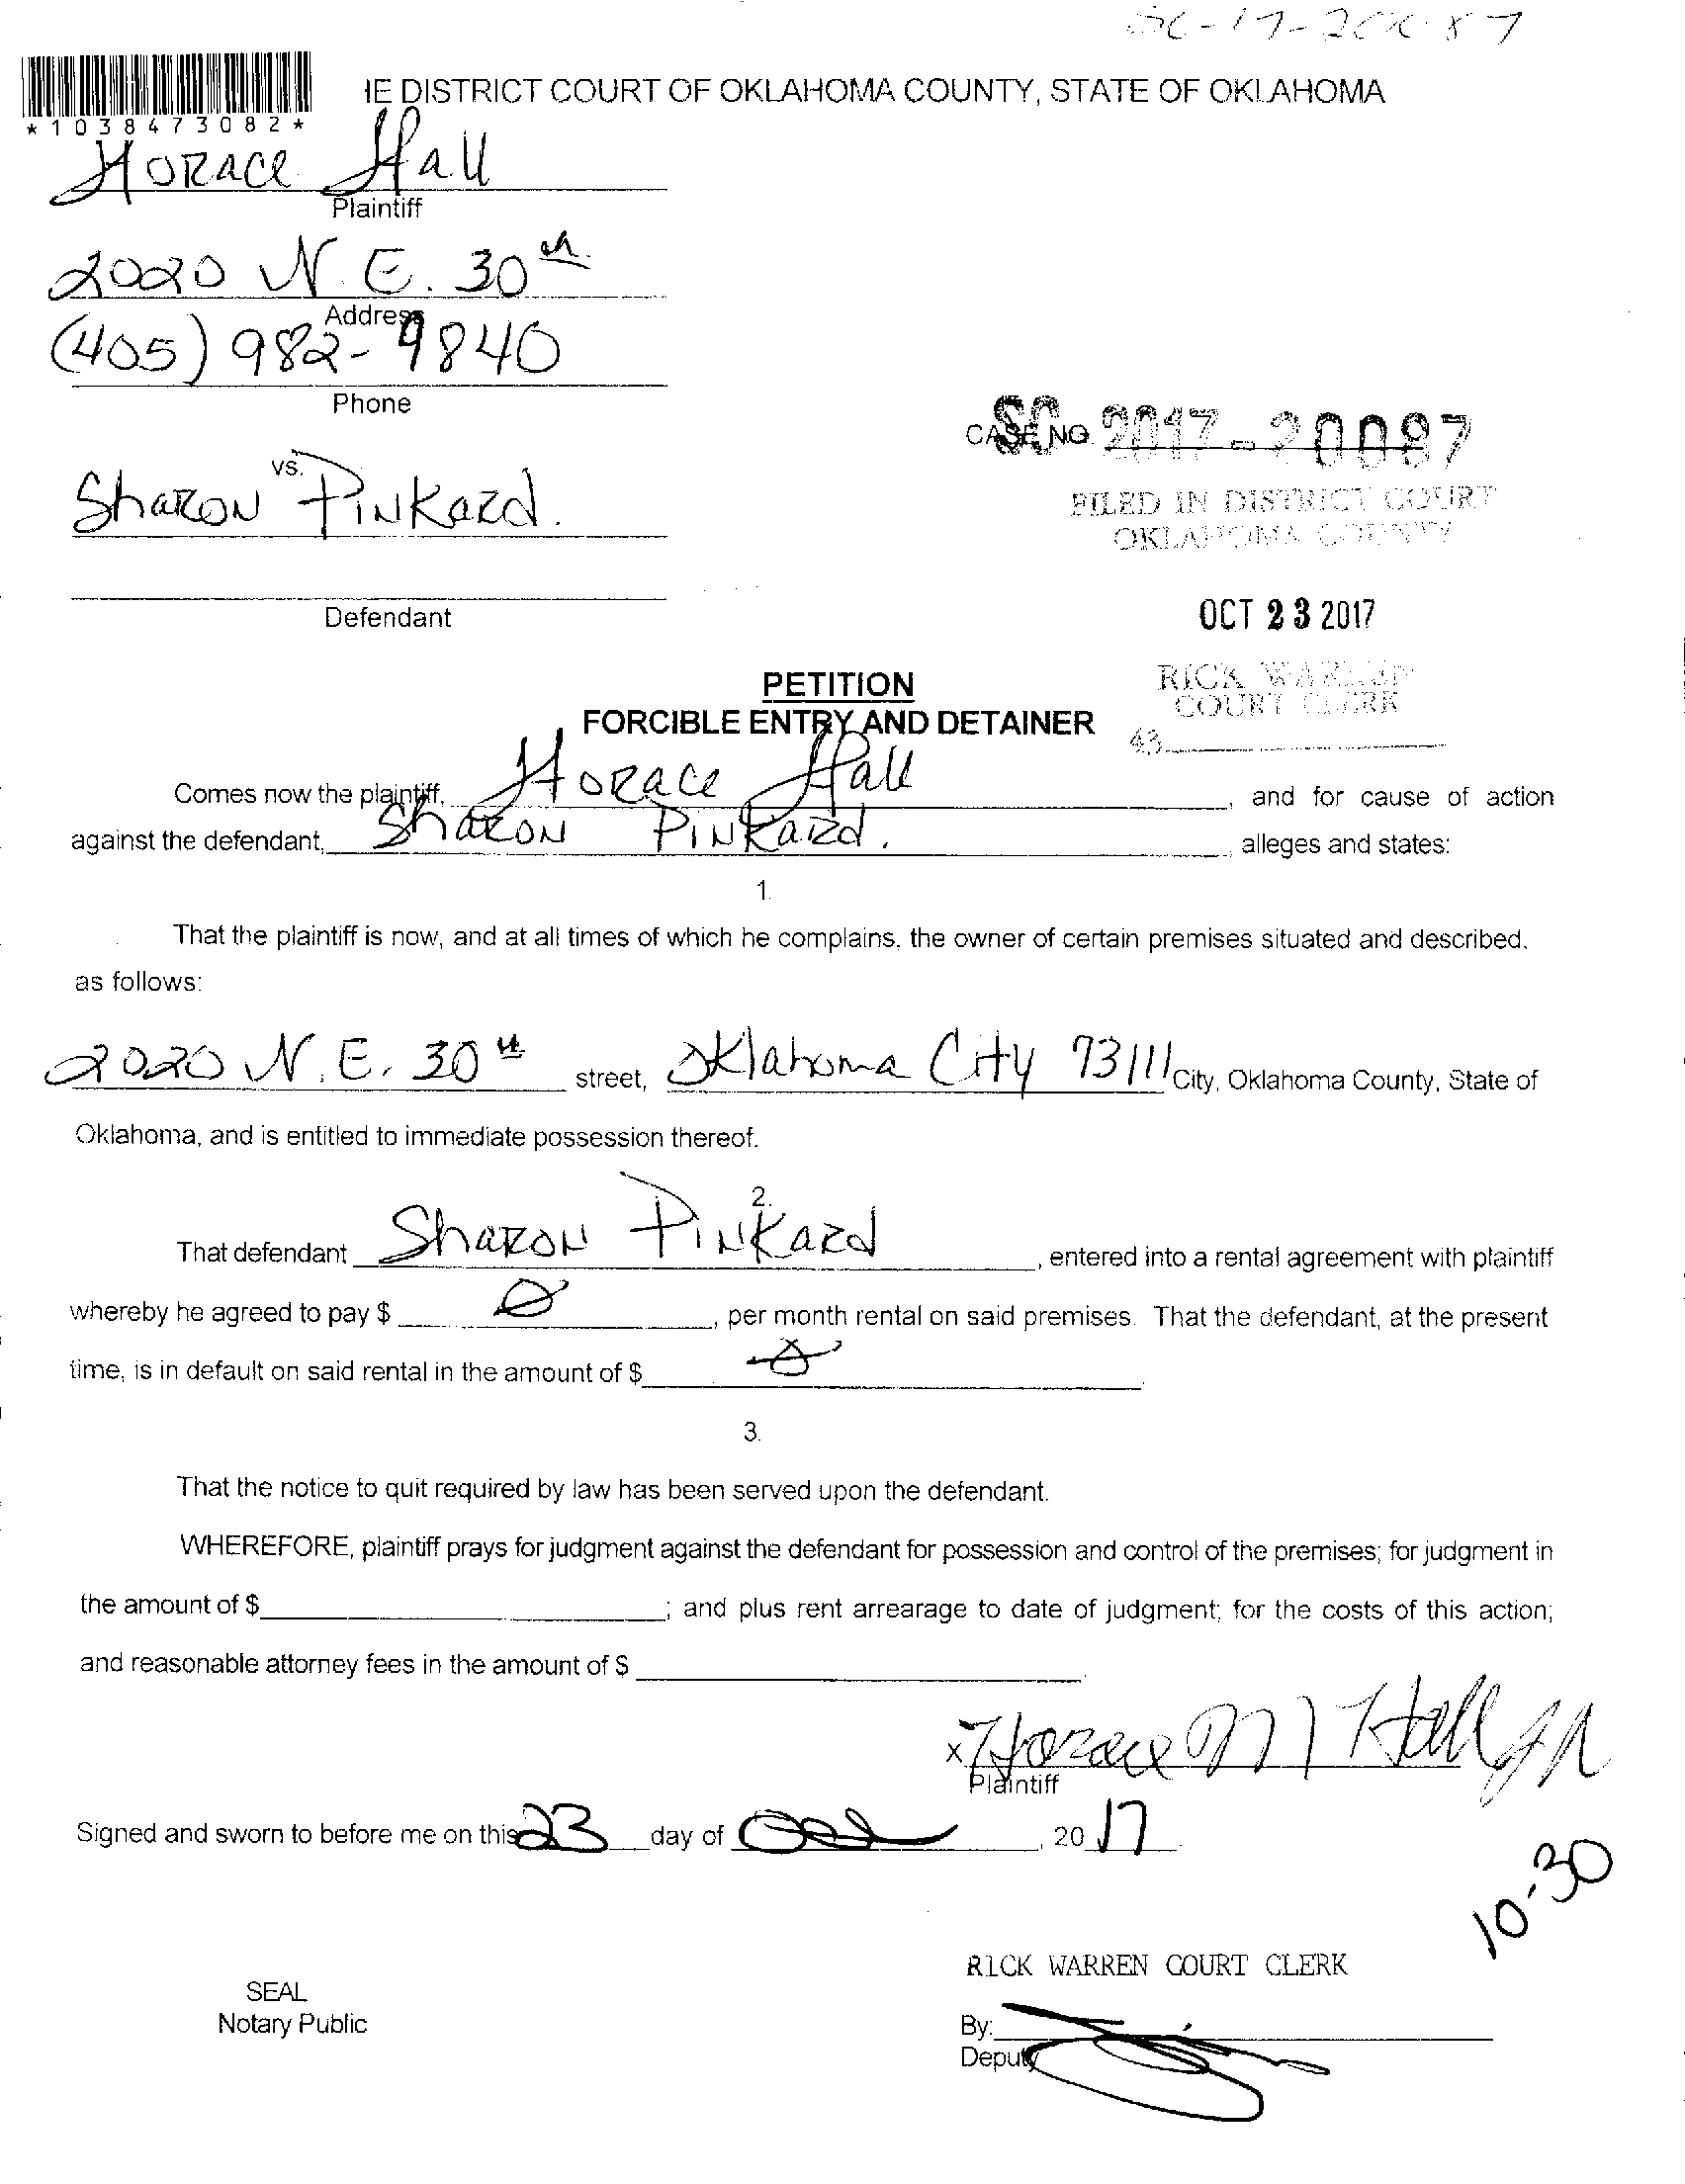 IE DISTRICT COURT OF OKLAHOMA COUNTY, STATE OF OKLAHOMA
*1038473082*
Horace Hall
Plaintiff
2020 N.E. 30th
Address
(405) 982-9840
Phone
CASE NO. SC-2017-20087
vs.
Sharon Pinkard.
FILED IN DISTRICT COURT
OKLAHOMA COUNTY
Defendant
OCT 23 2017
PETITION
RICK WARREN
COURT CLERK
FORCIBLE ENTRY AND DETAINER
43
Comes now the plaintiff, Horace Hall, and for cause of action
against the defendant, Sharon Pinkard. , alleges and states:
1.
That the plaintiff is now, and at all times of which he complains, the owner of certain premises situated and described,
as follows:
2020 N.E. 30th street, Oklahoma City 73111 City, Oklahoma County, State of
Oklahoma, and is entitled to immediate possession thereof.
2.
That defendant Sharon Pinkard, entered into a rental agreement with plaintiff
whereby he agreed to pay $ 0, per month rental on said premises. That the defendant, at the present
time, is in default on said rental in the amount of $ 0.
3.
That the notice to quit required by law has been served upon the defendant.
WHEREFORE, plaintiff prays for judgment against the defendant for possession and control of the premises; for judgment in
the amount of $ ; and plus rent arrearage to date of judgment; for the costs of this action;
and reasonable attorney fees in the amount of $ .
x Horace M Hall Jr
Plaintiff
Signed and sworn to before me on this 23 day of Oct, 20 17.
10-30
RICK WARREN COURT CLERK
SEAL
Notary Public
By:
Deputy